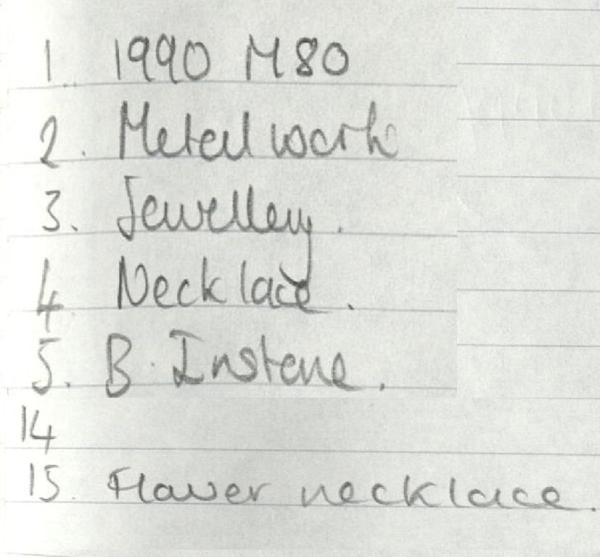 1. 1990 M80
2. Metalwork
3. Jewellery.
4. Necklace.
5. B. Instone.
14
15. Flower necklace.